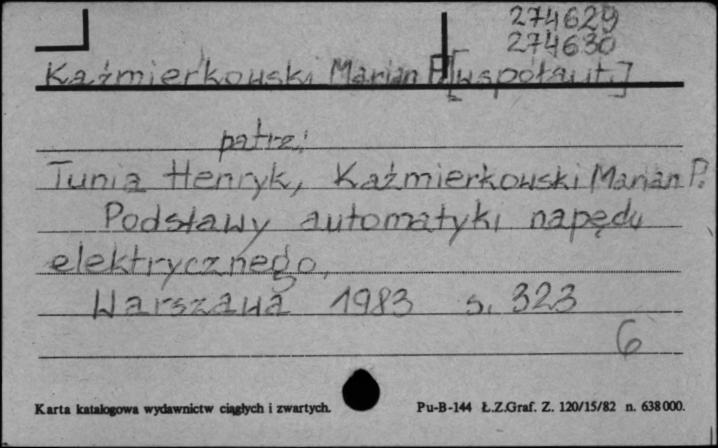 274629
274630
Kaźmierkowski Marian P. [współaut.]
patrz:
Tunia Henryk, Kaźmierkowski Marian P.
Podstawy automatyki napędu
elektrycznego,
Warszawa 1983 s. 323
6
Karta katalogowa wydawnictw ciągłych i zwartych. Pu-B-144 Ł.Z.Graf. Z. 120/15/82 n. 638000.